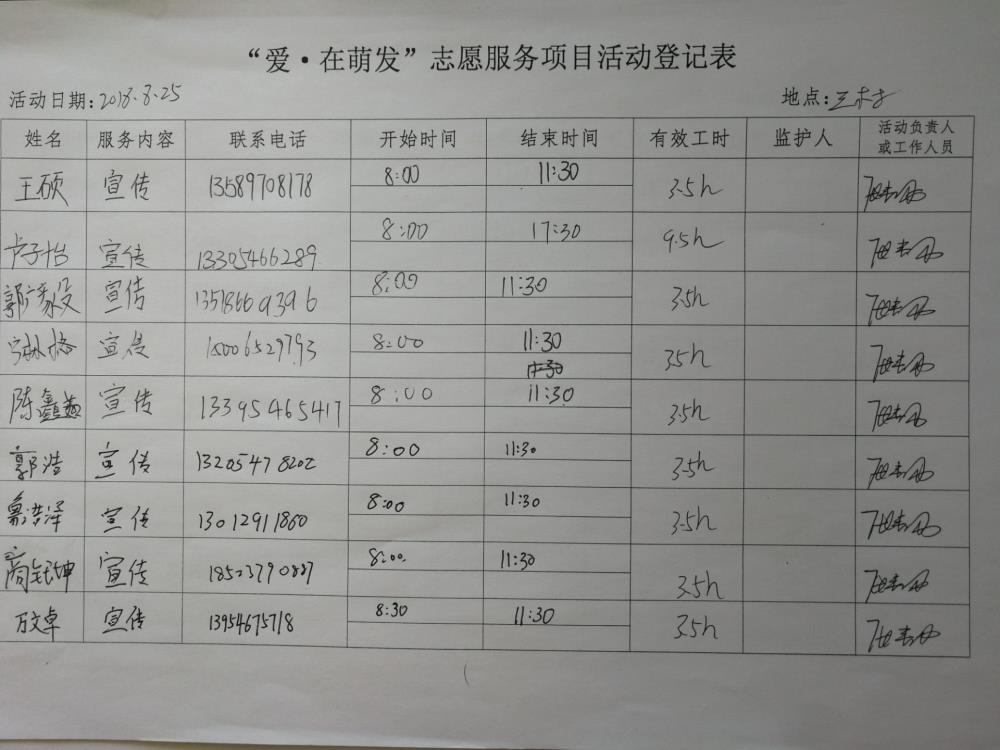 “爱·在萌发”志愿服务项目活动登记表
活动日期:2018.8.25 地点:三村
姓名 服务内容 联系电话 开始时间 结束时间 有效工时 监护人 活动负责人
或工作人员
王硕 宣传 13589708178 8:00 11:30 3.5h
卢子怡 宣传 13305466289 8:00 17:30 9.5h
郭 宣传 13518660396 8:00 11:30 3.5h
宣传 15006529793 8:00 11:30 3.5h
陈鑫 宣传 13395465417 8:00 11:30 3.5h
郭浩 宣传 13205478202 8:00 11:30 3.5h
浩泽 宣传 13012911860 8:00 11:30 3.5h
商钰坤 宣传 8:00 11:30 3.5h
万文卓 宣传 13954675718 8:30 11:30 3.5h